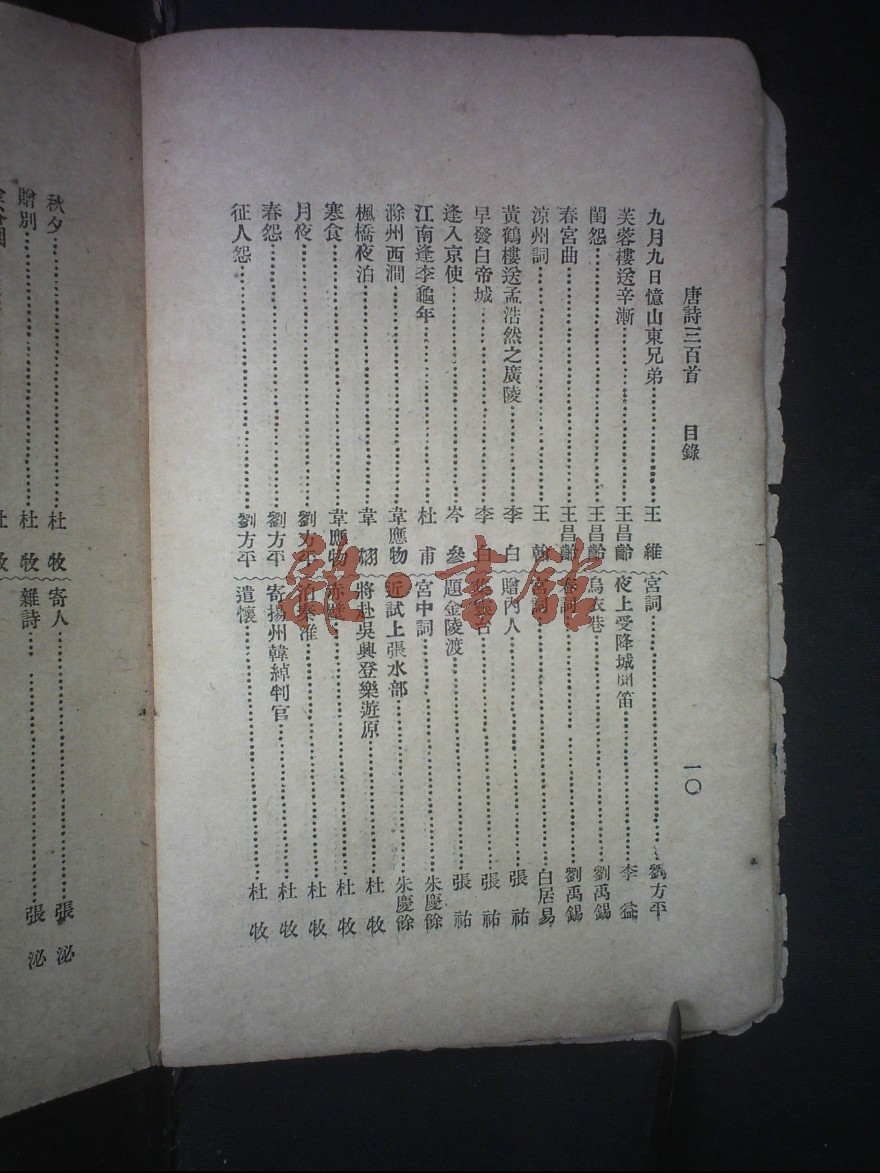 唐詩三百首 目錄 一〇
九月九日憶山東兄弟 王維
芙蓉樓送辛漸 王昌齡
閨怨 王昌齡
春宮曲 王昌齡
涼州詞 王翰
黃鶴樓送孟浩然之廣陵 李白
早發白帝城 李白
逢入京使 岑參
江南逢李龜年 杜甫
滁州西澗 韋應物
楓橋夜泊 韋
寒食 韋應物
月夜 劉方平
春怨 劉方平
征人怨 劉方平
宮詞 劉方平
夜上受降城聞笛 李益
烏衣巷 劉禹錫
春詞 劉禹錫
宮詞 白居易
贈內人 張祐
張祐
題金陵渡 張祐
宮中詞 朱慶餘
近試上張水部 朱慶餘
將赴吳興登樂遊原 杜牧
赤壁 杜牧
泊秦淮 杜牧
寄揚州韓綽判官 杜牧
遣懷 杜牧
秋夕 杜牧
贈別 杜牧
寄人 張泌
雜詩 張泌
雜·書館